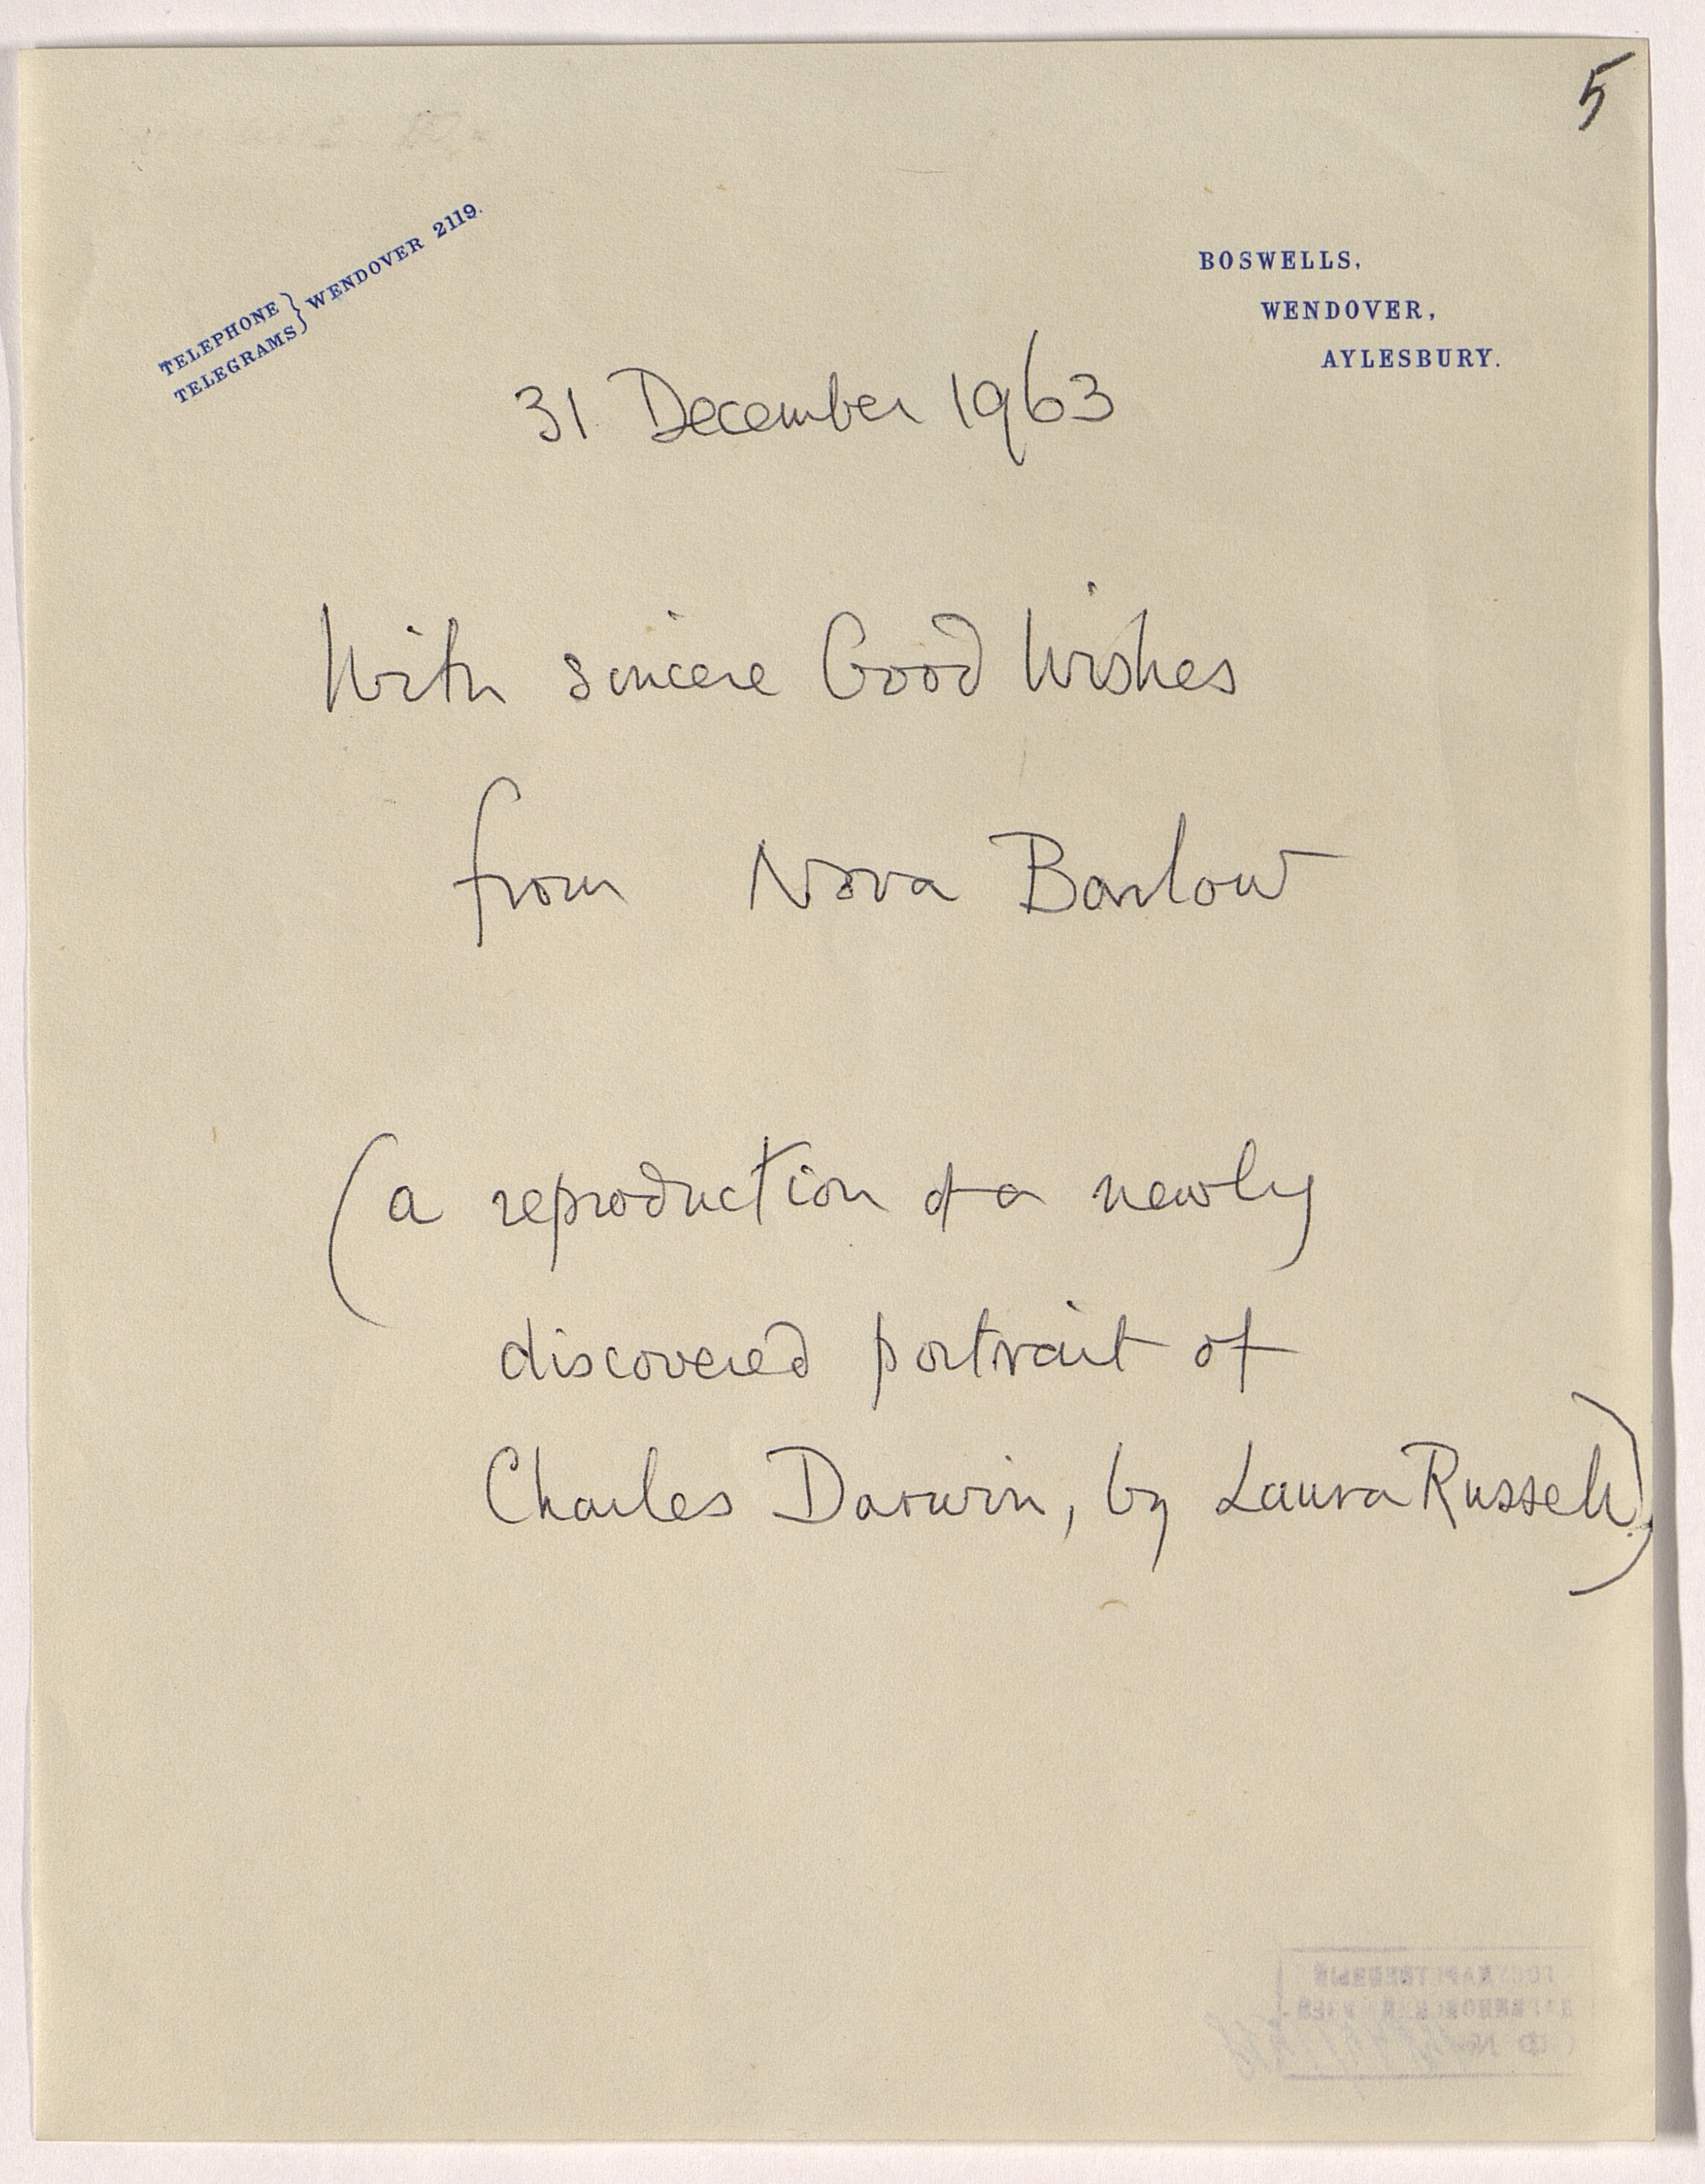 5
TELEPHONE
TELEGRAMS } WENDOVER 2119.
BOSWELLS,
WENDOVER,
AYLESBURY.
31 December 1963
With sincere Good Wishes
from Nora Barlow
(a reproduction of a newly
discovered portrait of
Charles Darwin, by Laura Russell)
ГОСУДАРСТВЕННЫЙ
ДАРВИНОВСКИЙ МУЗЕЙ